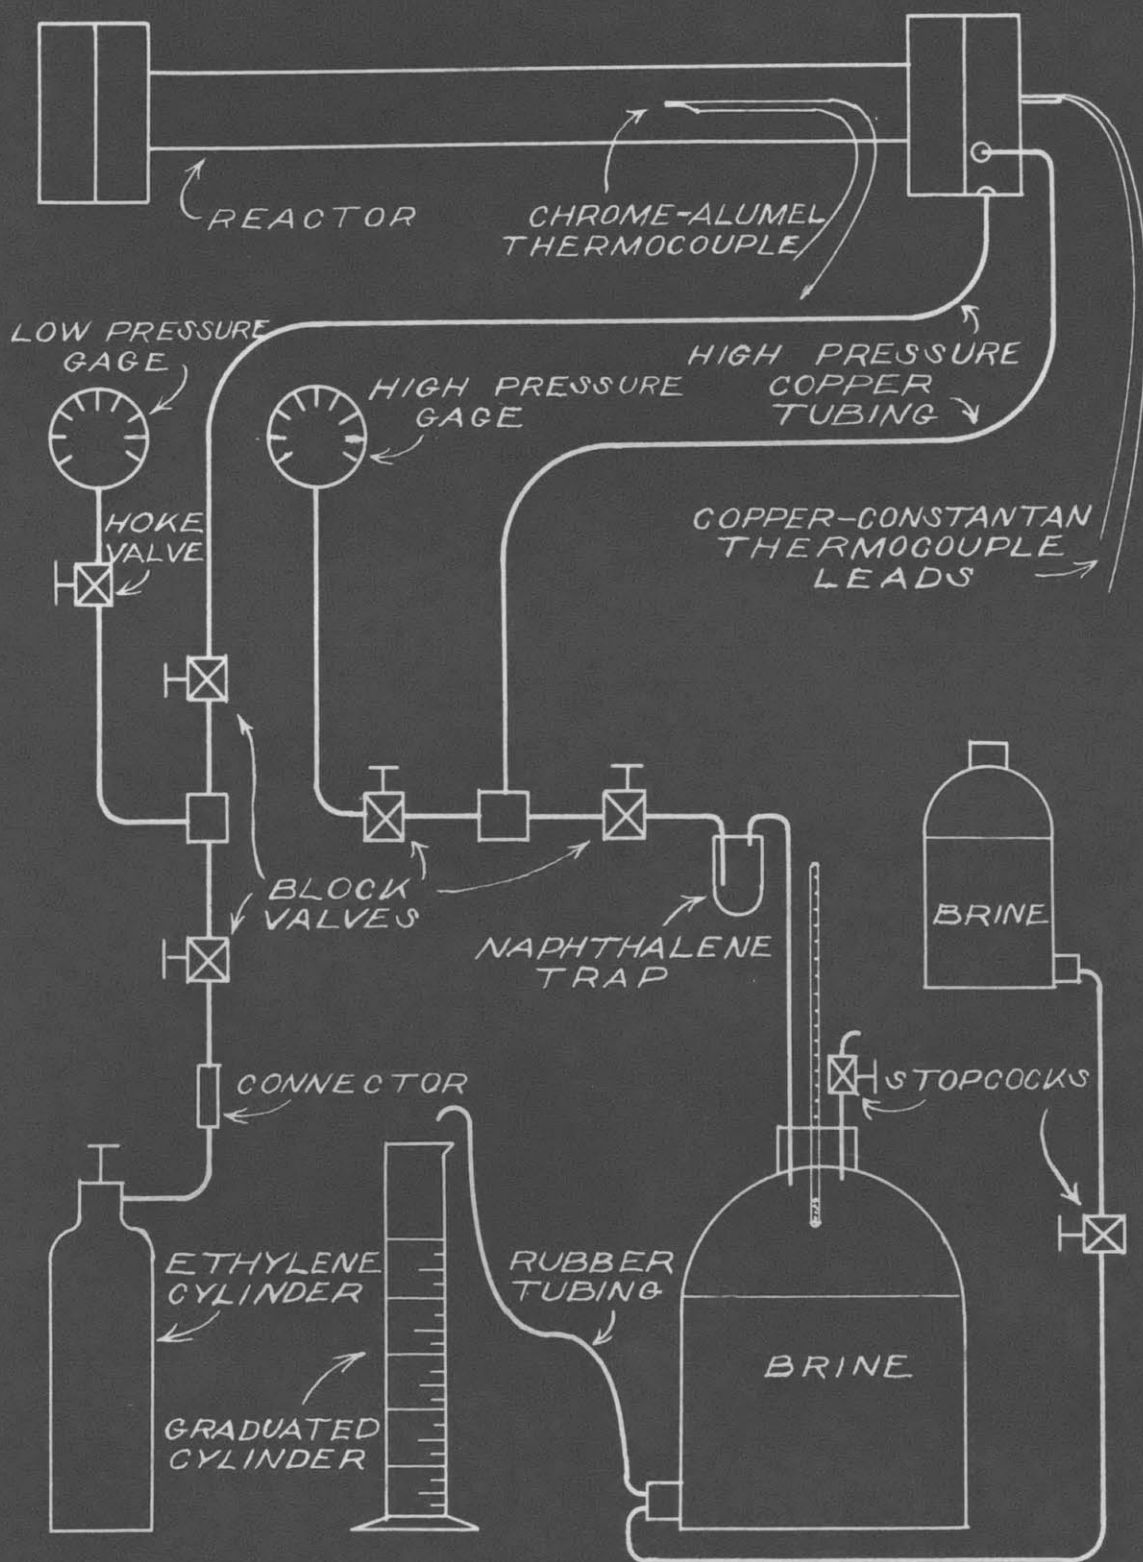 REACTOR
CHROME-ALUMEL
THERMOCOUPLE
LOW PRESSURE
GAGE
HIGH PRESSURE
GAGE
HIGH PRESSURE
COPPER
TUBING
HOKE
VALVE
COPPER-CONSTANTAN
THERMOCOUPLE
LEADS
BLOCK
VALVES
NAPHTHALENE
TRAP
BRINE
CONNECTOR
STOPCOCKS
ETHYLENE
CYLINDER
RUBBER
TUBING
BRINE
GRADUATED
CYLINDER